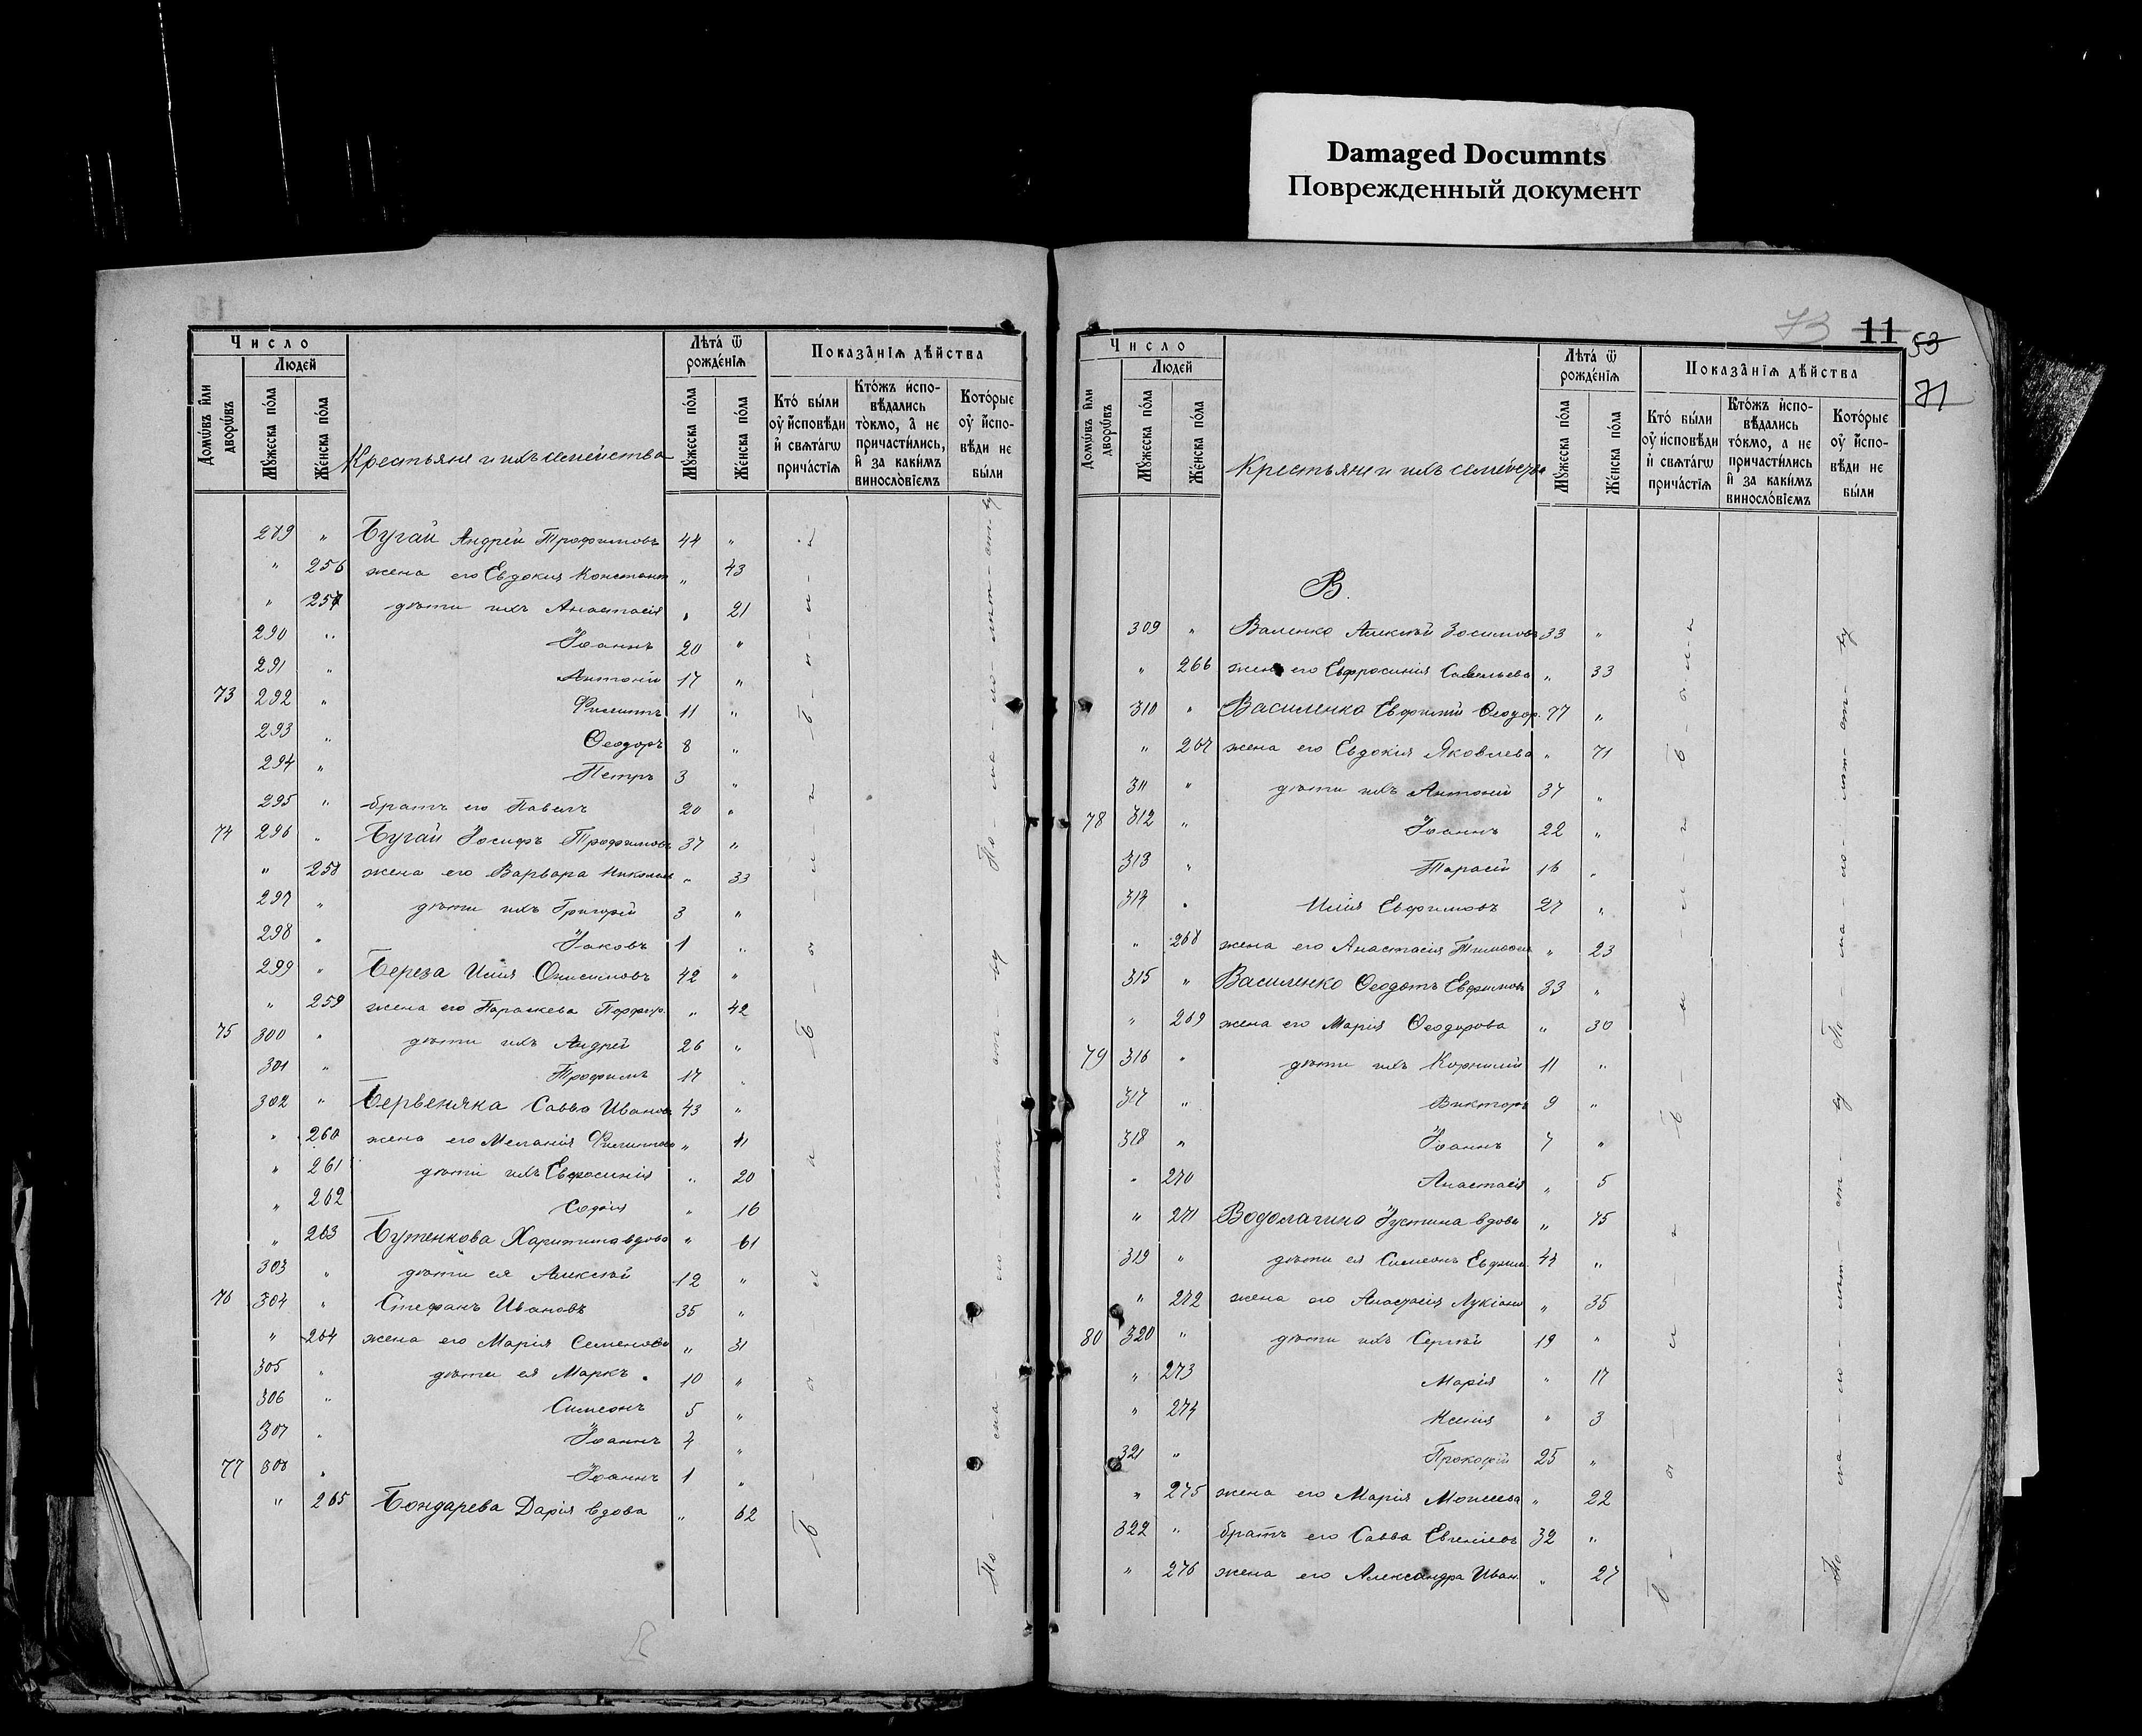 Damaged Documnts
Поврежденный документ
Число
Людей
Домѡвъ и҆лѝ дворѡ́въ
Мꙋ́жеска по́ла
Же́нска по́ла
Крестьяне и ихъ семейства
Лѣта̀ ѿ рожде́нїѧ
Мꙋ́жеска по́ла
Же́нска по́ла
Показа̑нїѧ дѣ́йства
Кто̀ бы́ли ᲂу҆ и҆́сповѣди и҆ свѧта́гѡ прича́стїѧ
Кто́жъ и҆спо-
вѣ́дались
то́кмо, а҆ не
причасти́лись,
и҆ за каки́мъ
винослові́емъ
Кото́рые ᲂу҆ и҆́спо-
вѣди не
бы́ли
289 " Бугай Андрей Трофимовъ 44 "
" 256 жена его Евдокия Констант. " 43
" 257 дѣти ихъ Анастасія " 21
290 " Іоаннъ 20 "
291 " Антоній 17 "
73 292 " Филиппъ 11 "
293 " Ѳеодоръ 8 "
294 " Петръ 3 "
295 " братъ его Павелъ 20 "
74 296 " Бугай Іосифъ Трофимовъ 37 "
" 258 жена его Варвара Николаев " 33
297 " дѣти ихъ Григорій 3 "
298 " Іаковъ 1 "
299 " Береза Илія Онисимовъ 42 "
" 259 жена его Параскева Порфир. " 42
75 300 " дѣти ихъ Андрей 26 "
301 " Трофимъ 17 "
302 " Бервеняка Савва Ивановъ 43 "
" 260 жена его Меланія Филиппова " 41
" 261 дѣти ихъ Евфросинія " 20
" 262 Софія " 16
" 263 Бутенкова Харитина вдова " 61
303 " дѣти ея Алексѣй 12 "
76 304 " Стефанъ Ивановъ 35 "
" 264 жена его Марія Семенова " 31
305 " дѣти ея Маркъ 10 "
306 " Симеонъ 5 "
307 " Іоаннъ 4 "
77 308 " Іоаннъ 1 "
" 265 Бондарева Дарія вдова " 62
73 11 53
71
Число
Людей
Домѡвъ и҆лѝ дворѡ́въ
Мꙋ́жеска по́ла
Же́нска по́ла
Крестьяне и ихъ семейства
Лѣта̀ ѿ рожде́нїѧ
Мꙋ́жеска по́ла
Же́нска по́ла
Показа̑нїѧ дѣ́йства
Кто̀ бы́ли ᲂу҆ и҆́сповѣди и҆ свѧта́гѡ прича́стїѧ
Кто́жъ и҆спо-
вѣ́дались
то́кмо, а҆ не
причасти́лись
и҆ за каки́мъ
винослові́емъ
Кото́рые ᲂу҆ и҆́спо-
вѣди не
бы́ли
В.
309 " Валенко Алексѣй Зосимовъ 33 "
" 266 жена его Евфросинія Савельева " 33
310 " Василенко Евфимій Ѳеодор. 77 "
" 267 жена его Евдокія Яковлева " 71
311 " дѣти ихъ Антоній 37 "
78 312 " Іоаннъ 22 "
313 " Тарасій 16 "
314 " Илія Евфимовъ 27 "
" 268 жена его Анастасія Тимоѳеев " 23
315 " Василенко Ѳеодотъ Евфимовъ 33 "
" 269 жена его Марія Ѳеодорова " 30
79 316 " дѣти ихъ Корнилій 11 "
317 " Викторъ 9 "
318 " Іоаннъ 7 "
" 270 Анастасія " 5
" 271 Водолагина Іустина вдова " 75
319 " дѣти ея Симеонъ Евфим. 44 "
" 272 жена его Анастасія Лукіано " 35
80 320 " дѣти ихъ Сергѣй 19 "
" 273 Марія " 17
" 274 Ксенія " 3
321 " Прокофій 25 "
" 275 жена его Марія Моисеева " 22
322 " братъ его Савва Евгеніевъ 32 "
" 276 жена его Александра Иван. " 27